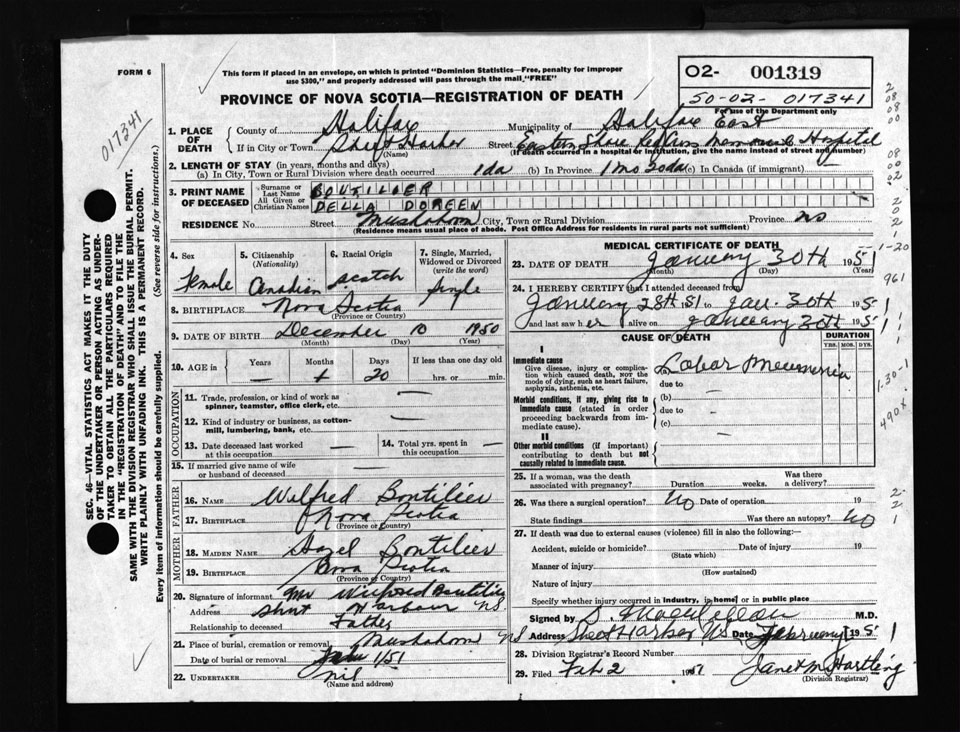 FORM 6
This form if placed in an envelope, on which is printed "Dominion Statistics—Free, penalty for improper
use $300," and properly addressed will pass through the mail "FREE"
O2- 001319
50-02- 017341
For use of the Department only
PROVINCE OF NOVA SCOTIA—REGISTRATION OF DEATH
017341
SEC. 46—VITAL STATISTICS ACT MAKES IT THE DUTY
OF THE UNDERTAKER OR PERSON ACTING AS UNDER-
TAKER TO OBTAIN ALL THE PARTICULARS REQUIRED
IN THE "REGISTRATION OF DEATH" AND TO FILE THE
SAME WITH THE DIVISION REGISTRAR WHO SHALL ISSUE THE BURIAL PERMIT.
WRITE PLAINLY WITH UNFADING INK. THIS IS A PERMANENT RECORD.
Every item of information should be carefully supplied. (See reverse side for instructions.)
1. PLACE OF DEATH County of Halifax Municipality of Halifax East
If in City or Town Sheet Harbor Street Eastern Shore Red Cross Memorial Hospital
(Name) (If death occurred in a hospital or institution, give the name instead of street and number)
2. LENGTH OF STAY (in years, months and days)
(a) In City, Town or Rural Division where death occurred 1 da (b) In Province 1 mo 20 da (c) In Canada (if immigrant)
3. PRINT NAME OF DECEASED Surname or Last Name BOUTILIER
All Given or Christian Names DELLA DOREEN
RESIDENCE No. Street Mushaboom City, Town or Rural Division Province NS
(Residence means usual place of abode. Post Office Address for residents in rural parts not sufficient)
4. Sex Female
5. Citizenship (Nationality) Canadian
6. Racial Origin Scotch
7. Single, Married, Widowed or Divorced (write the word) Single
8. BIRTHPLACE Nova Scotia
(Province or Country)
9. DATE OF BIRTH December 10 1950
(Month) (Day) (Year)
10. AGE in Years — Months 1 Days 20 If less than one day old hrs. or min.
OCCUPATION
11. Trade, profession, or kind of work as spinner, teamster, office clerk, etc. —
12. Kind of industry or business, as cotton-mill, lumbering, bank, etc. —
13. Date deceased last worked at this occupation —
14. Total yrs. spent in this occupation —
15. If married give name of wife or husband of deceased —
FATHER
16. NAME Wilfred Boutilier
17. BIRTHPLACE Nova Scotia
(Province or Country)
MOTHER
18. MAIDEN NAME Hazel Boutilier
19. BIRTHPLACE Nova Scotia
(Province or Country)
20. Signature of informant Mr Wilfred Boutilier
Address Harbour NS.
Relationship to deceased Father
21. Place of burial, cremation or removal Mushaboom NS
Date of burial or removal 1/51
22. UNDERTAKER nil
(Name and address)
MEDICAL CERTIFICATE OF DEATH
23. DATE OF DEATH January 30th 1951
(Month) (Day) (Year)
24. I HEREBY CERTIFY that I attended deceased from
January 28th 51 to Jan. 30th 1951
and last saw her alive on January 30th 1951
CAUSE OF DEATH DURATION
YRS. MOS. DYS.
I
Immediate cause
Give disease, injury or complication which caused death, not the mode of dying, such as heart failure, asphyxia, asthenia, etc.
(a) Lobar Pneumonia
due to
Morbid conditions, if any, giving rise to immediate cause (stated in order proceeding backwards from immediate cause).
(b) —
due to —
(c)
II
Other morbid conditions (if important) contributing to death but not causally related to immediate cause.
—
25. If a woman, was the death associated with pregnancy? Duration weeks. Was there a delivery?
26. Was there a surgical operation? No Date of operation 19
State findings Was there an autopsy? No
27. If death was due to external causes (violence) fill in also the following:—
Accident, suicide or homicide? Date of injury 19
(State which)
Manner of injury
(How sustained)
Nature of injury
Specify whether injury occurred in industry, in home, or in public place
Signed by M.D.
Address Sheet Harbor NS Date February 1 1951
28. Division Registrar's Record Number
29. Filed Feb 2 1951 Janet M Hartling
(Division Registrar)
1-20
961
1-30-1
490x
2-
2
1